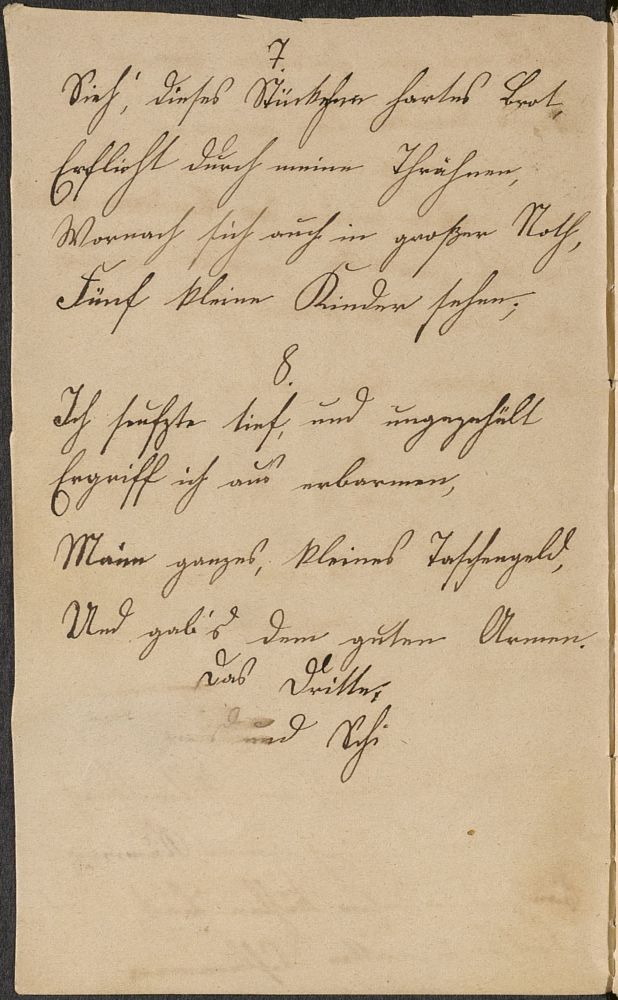 7.
Sieh', dieses Stückchen hartes Brot,
Erfließt durch meine Thrähnen,
Wornach sich auch in großer Noth,
Fünf kleine Kinder sehen;
8.
Ich seufzte tief, und ungezählt
Ergriff ich aus erbarmen,
Mein ganzes, kleines Taschengeld,
Und gab's dem guten Armen.
Das Dritte,
und Schi